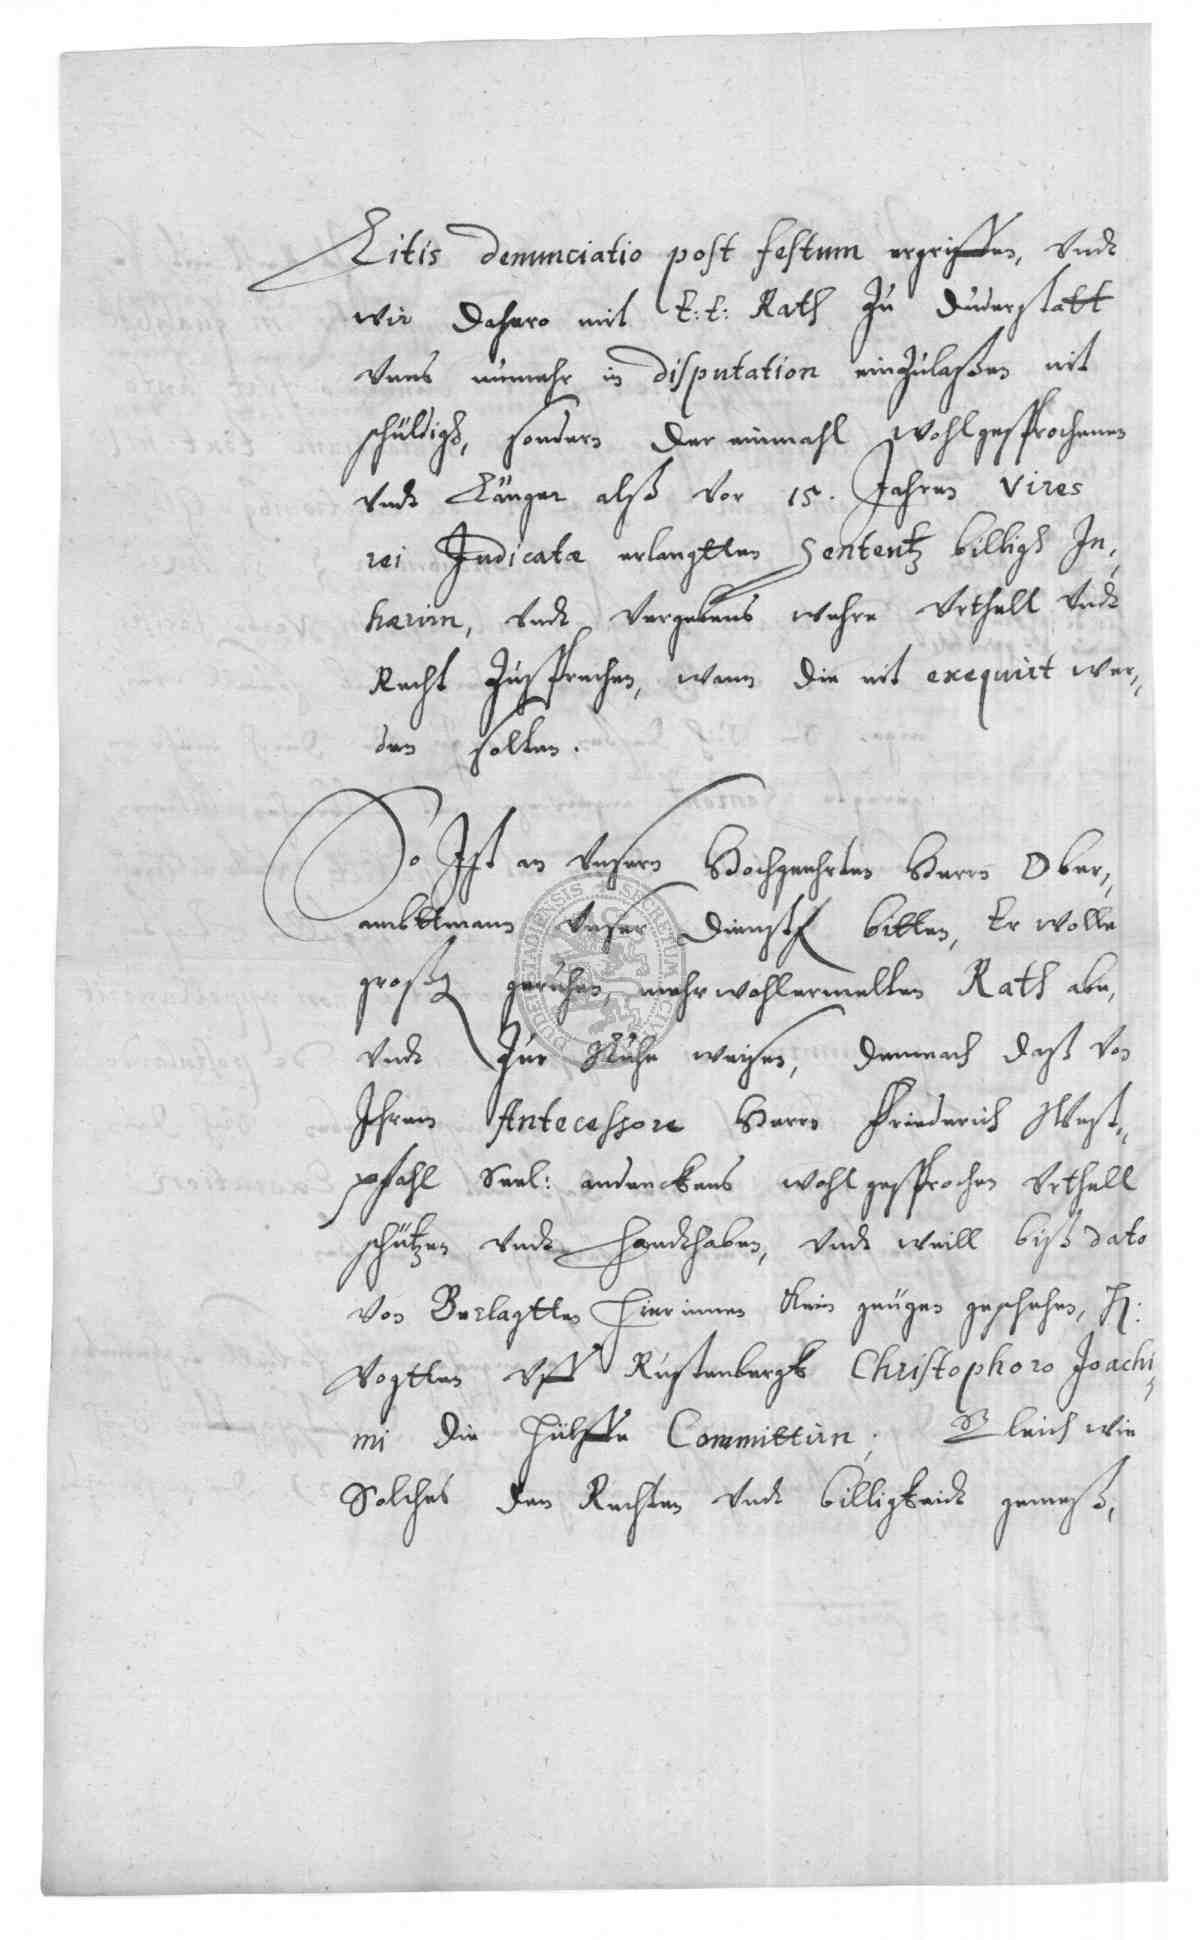 Litis denunciatio post festum ergriffen, Vndt
wir dahero mit E: E: Rath zu Duderstatt
Vnns nunmehr in disputation einzulaßen nit
schüldigh, sondern der einmahl wohlgesprochenen
Vndt Länger alß vor 15. Jahren Vires
rei Judicatæ erlangtten Sententz billigh In,
hærirn, Vndt Vergebens wehre Vrthell Vndt
Recht zusprechen, wann die nit exequirt wer,,
den solten.
So Ist an Vnsern Hochgeehrten Herrn Ober,,
ambttmann Vnser dienstl bitten, Er wolle
großg geruhen, mehrwohlermelten Rath abe,
Vndt Zur Ruhe weisen, demnach daß von
Ihrem Antecessore Herrn Friederich West,,
phahl Seel: andenckens wohl gesprochen Vrthell
schützen Vndt handthaben, Vndt weill biß dato
Von Beclagtten hierinnen kein genügen geschehen, H:
Vogtten Vff Rustenbergk Christophoro Joachi,
mi die hülffe Committirn; Gleich wie
Solches den Rechten Vndt billigkeidt gemeß,
DUDERSTADIENSIS SECRETUM